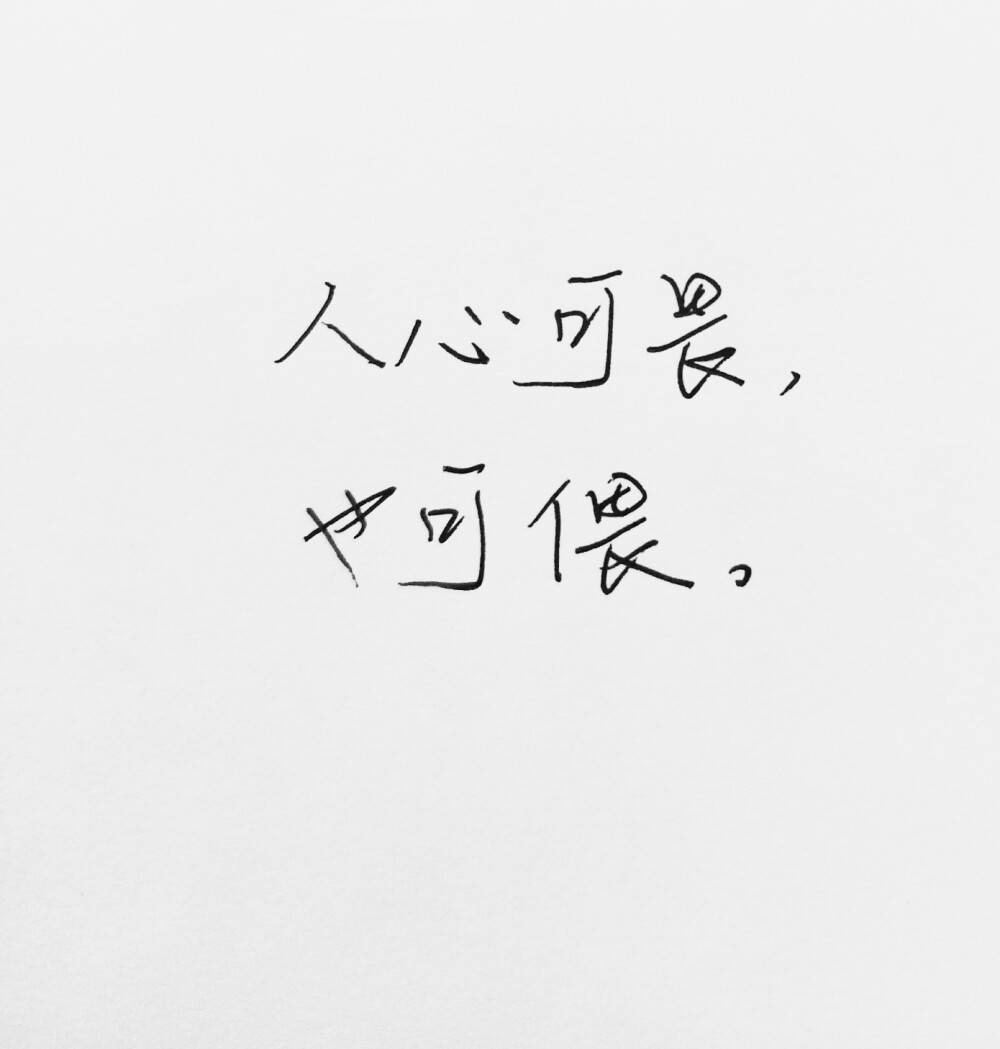 人心可畏，
也可偎。